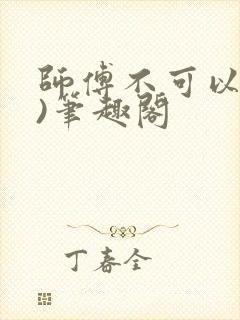 師傅不可以
)筆趣閣
丁春全